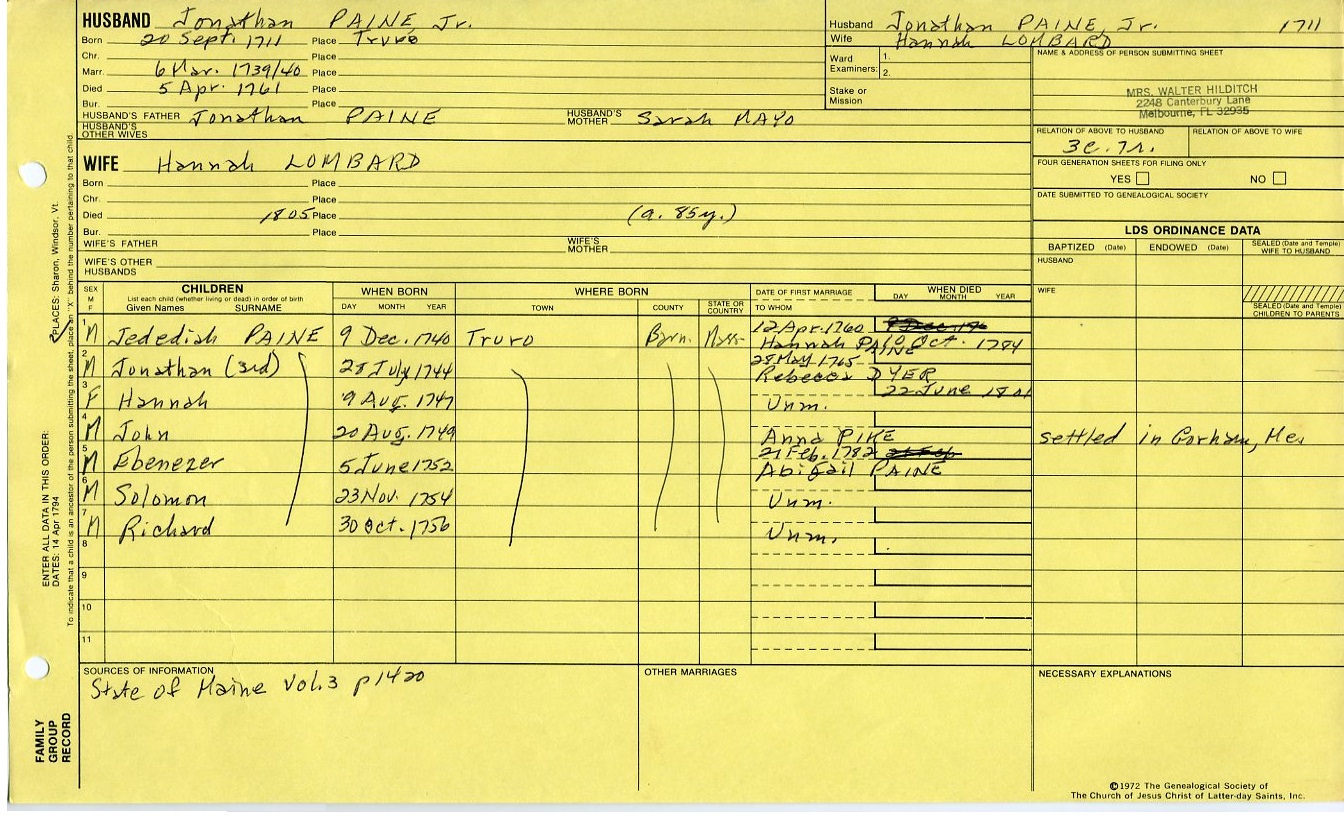 HUSBAND Jonathan PAINE Jr.
Born 20 Sept. 1711 Place Truro
Chr. Place
Marr. 6 Mar. 1739/40 Place
Died 5 Apr. 1761 Place
Bur. Place
HUSBAND'S FATHER Jonathan PAINE HUSBAND'S MOTHER Sarah MAYO
HUSBAND'S OTHER WIVES
WIFE Hannah LOMBARD
Born Place
Chr. Place
Died 1805 Place (a. 85y.)
Bur. Place
WIFE'S FATHER WIFE'S MOTHER
WIFE'S OTHER HUSBANDS
Husband Jonathan PAINE, Jr. 1711
Wife Hannah LOMBARD
Ward Examiners: 1.
2.
Stake or Mission
NAME & ADDRESS OF PERSON SUBMITTING SHEET
MRS. WALTER HILDITCH
2248 Canterbury Lane
Melbourne, FL 32935
RELATION OF ABOVE TO HUSBAND RELATION OF ABOVE TO WIFE
3c.7r.
FOUR GENERATION SHEETS FOR FILING ONLY
YES NO
DATE SUBMITTED TO GENEALOGICAL SOCIETY
LDS ORDINANCE DATA
BAPTIZED (Date) ENDOWED (Date) SEALED (Date and Temple) WIFE TO HUSBAND
HUSBAND
WIFE
SEALED (Date and Temple) CHILDREN TO PARENTS
SEX M F
CHILDREN
List each child (whether living or dead) in order of birth
Given Names SURNAME
WHEN BORN
DAY MONTH YEAR
WHERE BORN
TOWN COUNTY STATE OR COUNTRY
DATE OF FIRST MARRIAGE
TO WHOM
WHEN DIED
DAY MONTH YEAR
1 M Jedediah PAINE 9 Dec. 1740 Truro Barn. Mass 12 Apr. 1760
Hannah PAINE Oct. 1784
2 M Jonathan (3rd) 28 July 1744 28 May 1765
Rebecca DYER
3 F Hannah 9 Aug. 1747 22 June 1801
Unm.
4 M John 20 Aug. 1749 Anna PIKE settled in Gorham, Me.
5 M Ebenezer 5 June 1752 21 Feb. 1782
Abigail PAINE
6 M Solomon 23 Nov. 1754 Unm.
7 M Richard 30 Oct. 1756 Unm.
8
9
10
11
SOURCES OF INFORMATION
State of Maine Vol.3 p1420
OTHER MARRIAGES
NECESSARY EXPLANATIONS
©1972 The Genealogical Society of
The Church of Jesus Christ of Latter-day Saints, Inc.
FAMILY GROUP RECORD
ENTER ALL DATA IN THIS ORDER:
DATES: 14 Apr 1794
PLACES: Sharon, Windsor, Vt.
To indicate that a child is an ancestor of the person submitting the sheet, place an "X" behind the number pertaining to that child.